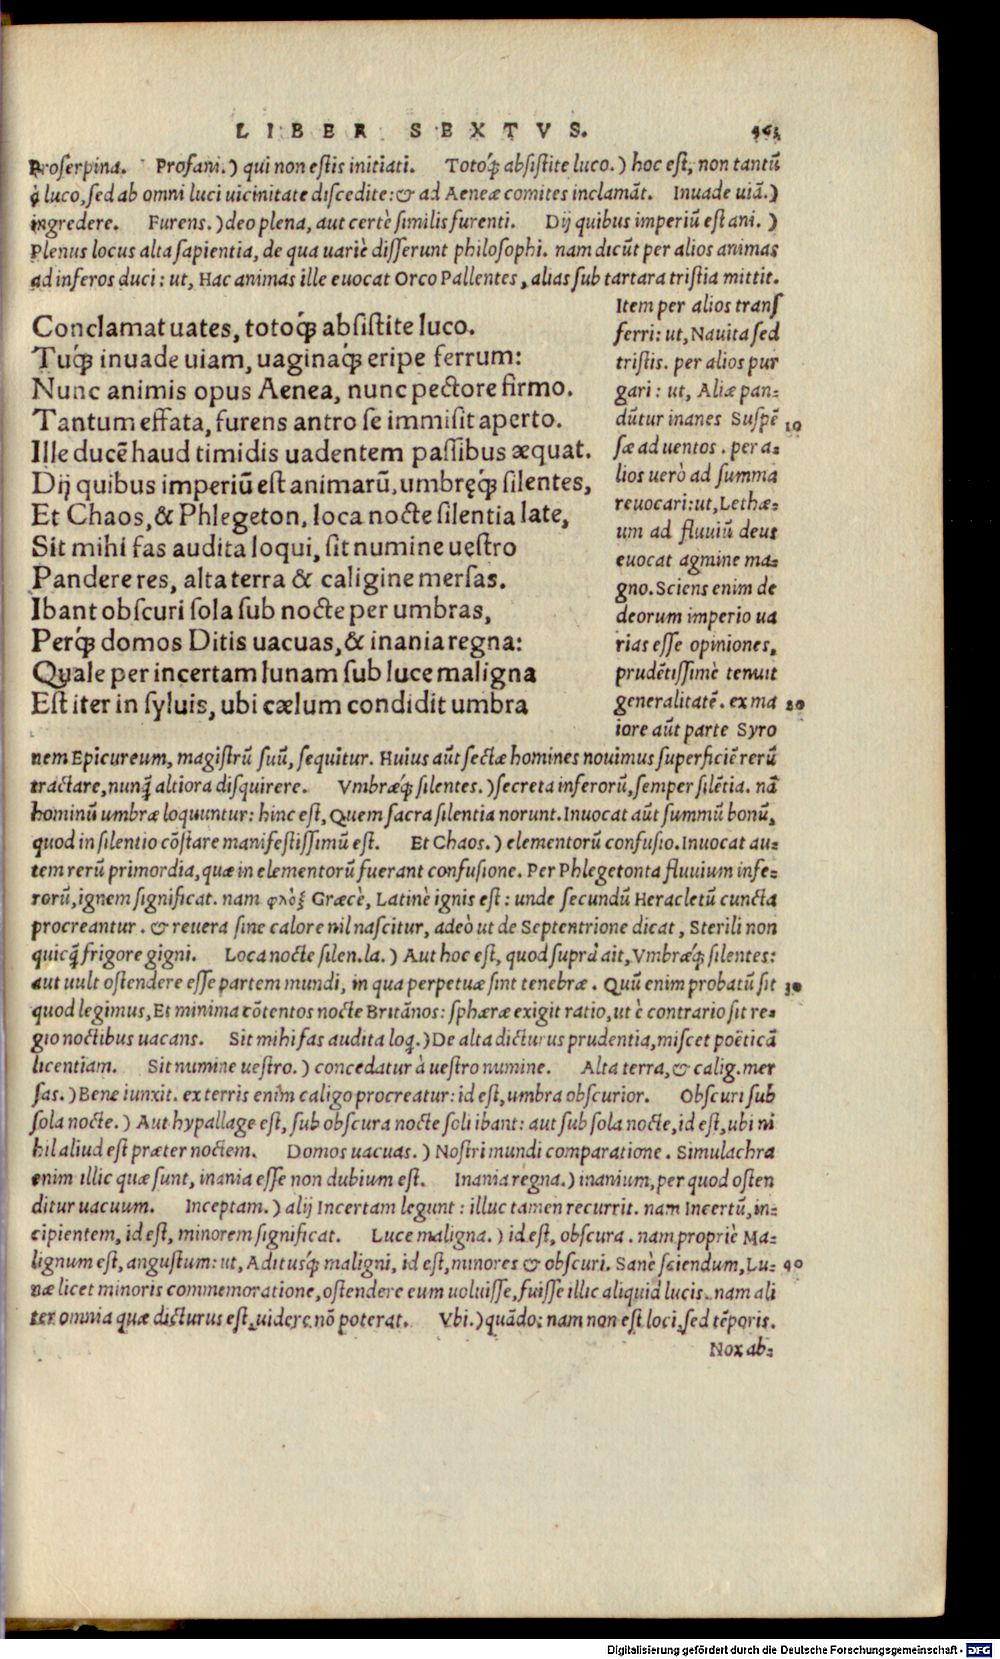 LIBER SEXTVS.
Proserpina. Profani.) qui non estis initiati. Totoq́; absistite luco.) hoc est, non tantũ
è luco, sed ab omni luci uicinitate discedite: & ad Aeneæ comites inclamãt. Inuade uiã.)
ingredere. Furens.) deo plena, aut certè similis furenti. Dij quibus imperiũ est ani.)
Plenus locus alta sapientia, de qua uariè disserunt philosophi. nam dicũt per alios animas
ad inferos duci: ut, Hac animas ille euocat Orco Pallentes, alias sub tartara tristia mittit.
Conclamat uates, totoq́; absistite luco.
Tuq́; inuade uiam, uaginaq́; eripe ferrum:
Nunc animis opus Aenea, nunc pectore firmo.
Tantum effata, furens antro se immisit aperto.
Ille ducẽ haud timidis uadentem passibus æquat.
Dij quibus imperiũ est animarũ, umbręq́; silentes,
Et Chaos, & Phlegeton, loca nocte silentia late,
Sit mihi fas audita loqui, sit numine uestro
Pandere res, alta terra & caligine mersas.
Ibant obscuri sola sub nocte per umbras,
Perq́; domos Ditis uacuas, & inania regna:
Quale per incertam lunam sub luce maligna
Est iter in syluis, ubi cælum condidit umbra
Item per alios trans
ferri: ut, Nauita sed
tristis. per alios pur
gari: ut, Aliæ pan-
dũtur inanes Suspẽ 10
sæ ad uentos. per a-
lios uerò ad summa
reuocari: ut, Lethæ-
um ad fluuiũ deus
euocat agmine ma-
gno. Sciens enim de
deorum imperio ua
rias esse opiniones,
prudẽtissimè tenuit
generalitatẽ. ex ma 20
iore aũt parte Syro
nem Epicureum, magistrũ suũ, sequitur. Huius aũt sectæ homines nouimus superficiẽ rerũ
tractare, nunq̃ altiora disquirere. Vmbræq́; silentes.) secreta inferorũ, semper silẽtia. nã
hominũ umbræ loquuntur: hinc est, Quem sacra silentia norunt. Inuocat aũt summũ bonũ,
quod in silentio cõstare manifestissimũ est. Et Chaos.) elementorũ confusio. Inuocat au-
tem rerũ primordia, quæ in elementorũ fuerant confusione. Per Phlegetonta fluuium infe-
rorũ, ignem significat. nam φλὸξ Græcè, Latinè ignis est: unde secundũ Heracletũ cuncta
procreantur. & reuera sine calore nil nascitur, adeò ut de Septentrione dicat, Sterili non
quicq̃ frigore gigni. Loca nocte silen. la.) Aut hoc est, quod suprà ait, Vmbræq́; silentes:
aut uult ostendere esse partem mundi, in qua perpetuæ sint tenebræ. Quũ enim probatũ sit 30
quod legimus, Et minima cõtentos nocte Britãnos: sphæræ exigit ratio, ut è contrario sit re-
gio noctibus uacans. Sit mihi fas audita loq.) De alta dicturus prudentia, miscet poëticã
licentiam. Sit numine uestro.) concedatur à uestro numine. Alta terra, & calig. mer
sas.) Bene iunxit. ex terris enim caligo procreatur: id est, umbra obscurior. Obscuri sub
sola nocte.) Aut hypallage est, sub obscura nocte soli ibant: aut sub sola nocte, id est, ubi ni
hil aliud est præter noctem. Domos uacuas.) Nostri mundi comparatione. Simulachra
enim illic quæ sunt, inania esse non dubium est. Inania regna.) inanium, per quod osten
ditur uacuum. Inceptam.) alij Incertam legunt: illuc tamen recurrit. nam Incertũ, in-
cipientem, id est, minorem significat. Luce maligna.) id est, obscura. nam propriè Ma-
lignum est, angustum: ut, Aditusq́; maligni, id est, minores & obscuri. Sanè sciendum, Lu- 40
næ licet minoris commemoratione, ostendere eum uoluisse, fuisse illic aliquid lucis. nam ali
ter omnia quæ dicturus est, uidere nõ poterat. Vbi.) quãdo: nam non est loci, sed tẽporis.
Nox ab-
Digitalisierung gefördert durch die Deutsche Forschungsgemeinschaft - DFG